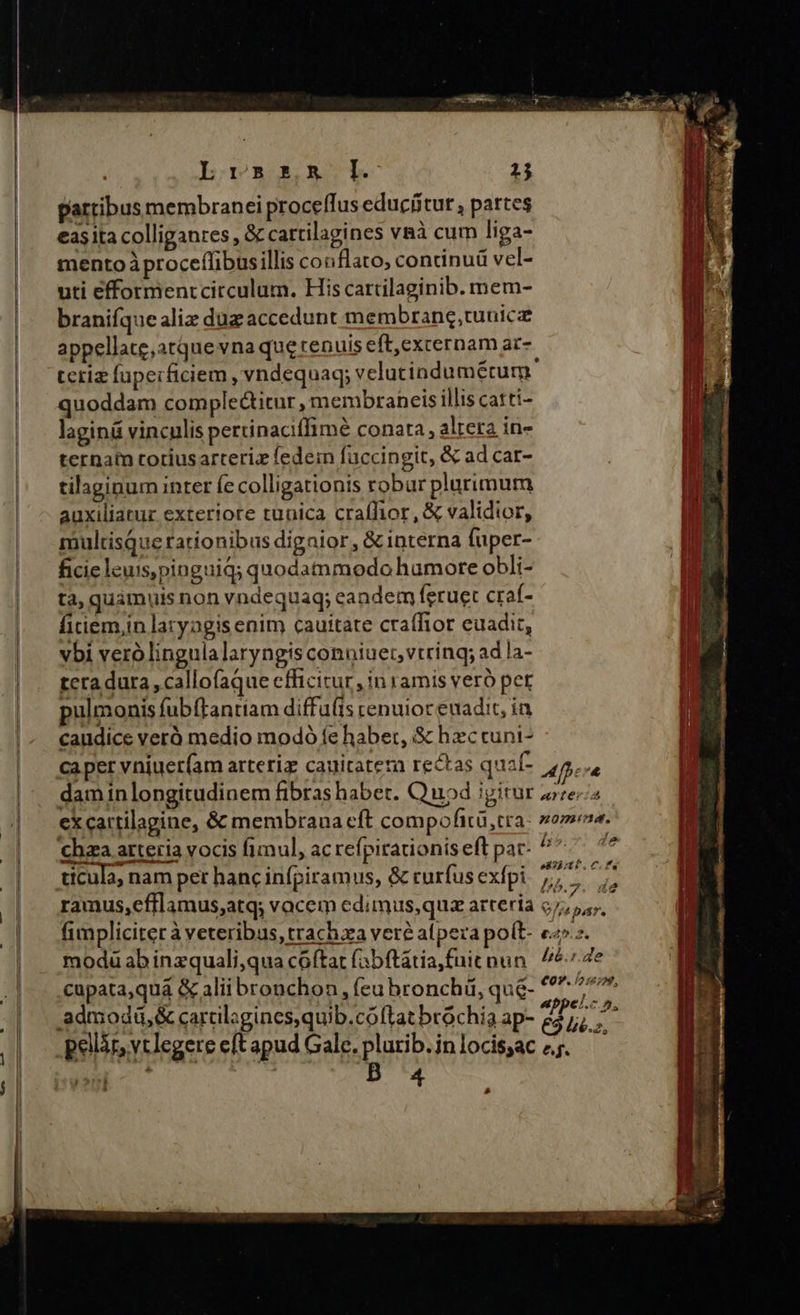 LIBER I. 23
partibus membranei processus educūtur, partes
eas ita colligantes, & cartilagines vnà cum liga-
mento à processibus illis conflato, continuū vel-
uti efforment circulum. His cartilaginib. mem-
branisque aliæ duæ accedunt membranę, tunicæ
appellatę, atque vna quę tenuis est, externam ar-
teriæ superficiem, vndequaq; velut indumētum
quoddam complectitur, membraneis illis carti-
laginū vinculis pertinacissimè conata, altera in-
ternam totius arteriæ sedem succingit, & ad car-
tilaginum inter se colligationis robur plurimum
auxiliatur exteriore tunica crassior, & validior,
multisque rationibus dignior, & interna super-
ficie leuis, pinguiq; quodammodo humore obli-
ta, quàmuis non vndequaq; eandem seruet cras-
sitiem, in laryngis enim cauitate crassior euadit,
vbi verò lingula laryngis conniuet, vtrinq; ad la-
tera dura, callosaque efficitur, in ramis verò per
pulmonis substantiam diffusis tenuior euadit, in
caudice verò medio modò se habet, & hæc tuni-
ca per vniuersam arteriæ cauitatem rectas quas-
dam in longitudinem fibras habet. Quod igitur
ex cartilagine, & membrana est compositū, tra-
chæa arteria vocis simul, ac respirationis est par-
ticula, nam per hanc inspiramus, & rursus exspi-
ramus, efflamus, atq; vocem edimus, quæ arteria
simpliciter à veteribus, trachæa verè aspera post-
modū ab inæquali, qua cōstat substātia, fuit nun
cupata, quā & alii bronchon, seu bronchū, quę-
admodū, & cartilagines, quib. cōstat brōchia ap-
pellāt, vt legere est apud Gale. plurib. in locis, ac
B 4
Aspera
arteria
nomina.
de
lib. 7. de
&
par.
lib. 1 de
appel. c
& lib. 2.